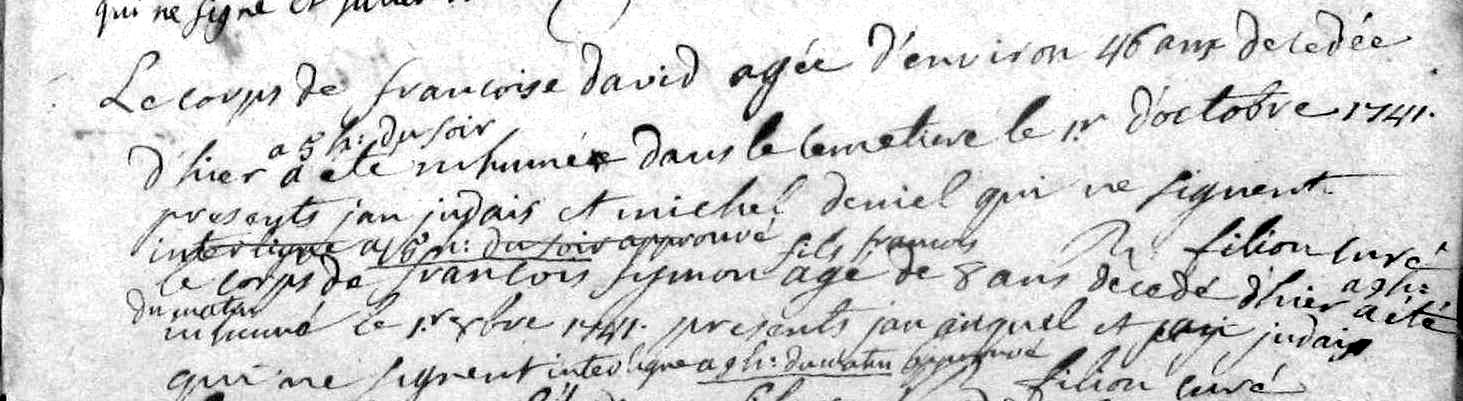 qui ne signe et
Le corps de francoise david agée d'environ 46 ans decedée
a 5 h: du soir
d'hier a ete inhumée dans le Cemetiere le 1.r d'octobre 1741.
presents jan judais et michel deniel qui ne signent
interligne a 5 h: du soir approuvé
filion curé
fils francois
le corps de francois symon agé de 8 ans decedé d'hier a 9 h:
du matin a été
inhumé le 1.r 8bre 1741. presents jan et judais
qui ne signent interligne a 9 h: du matin approuvé
filion curé